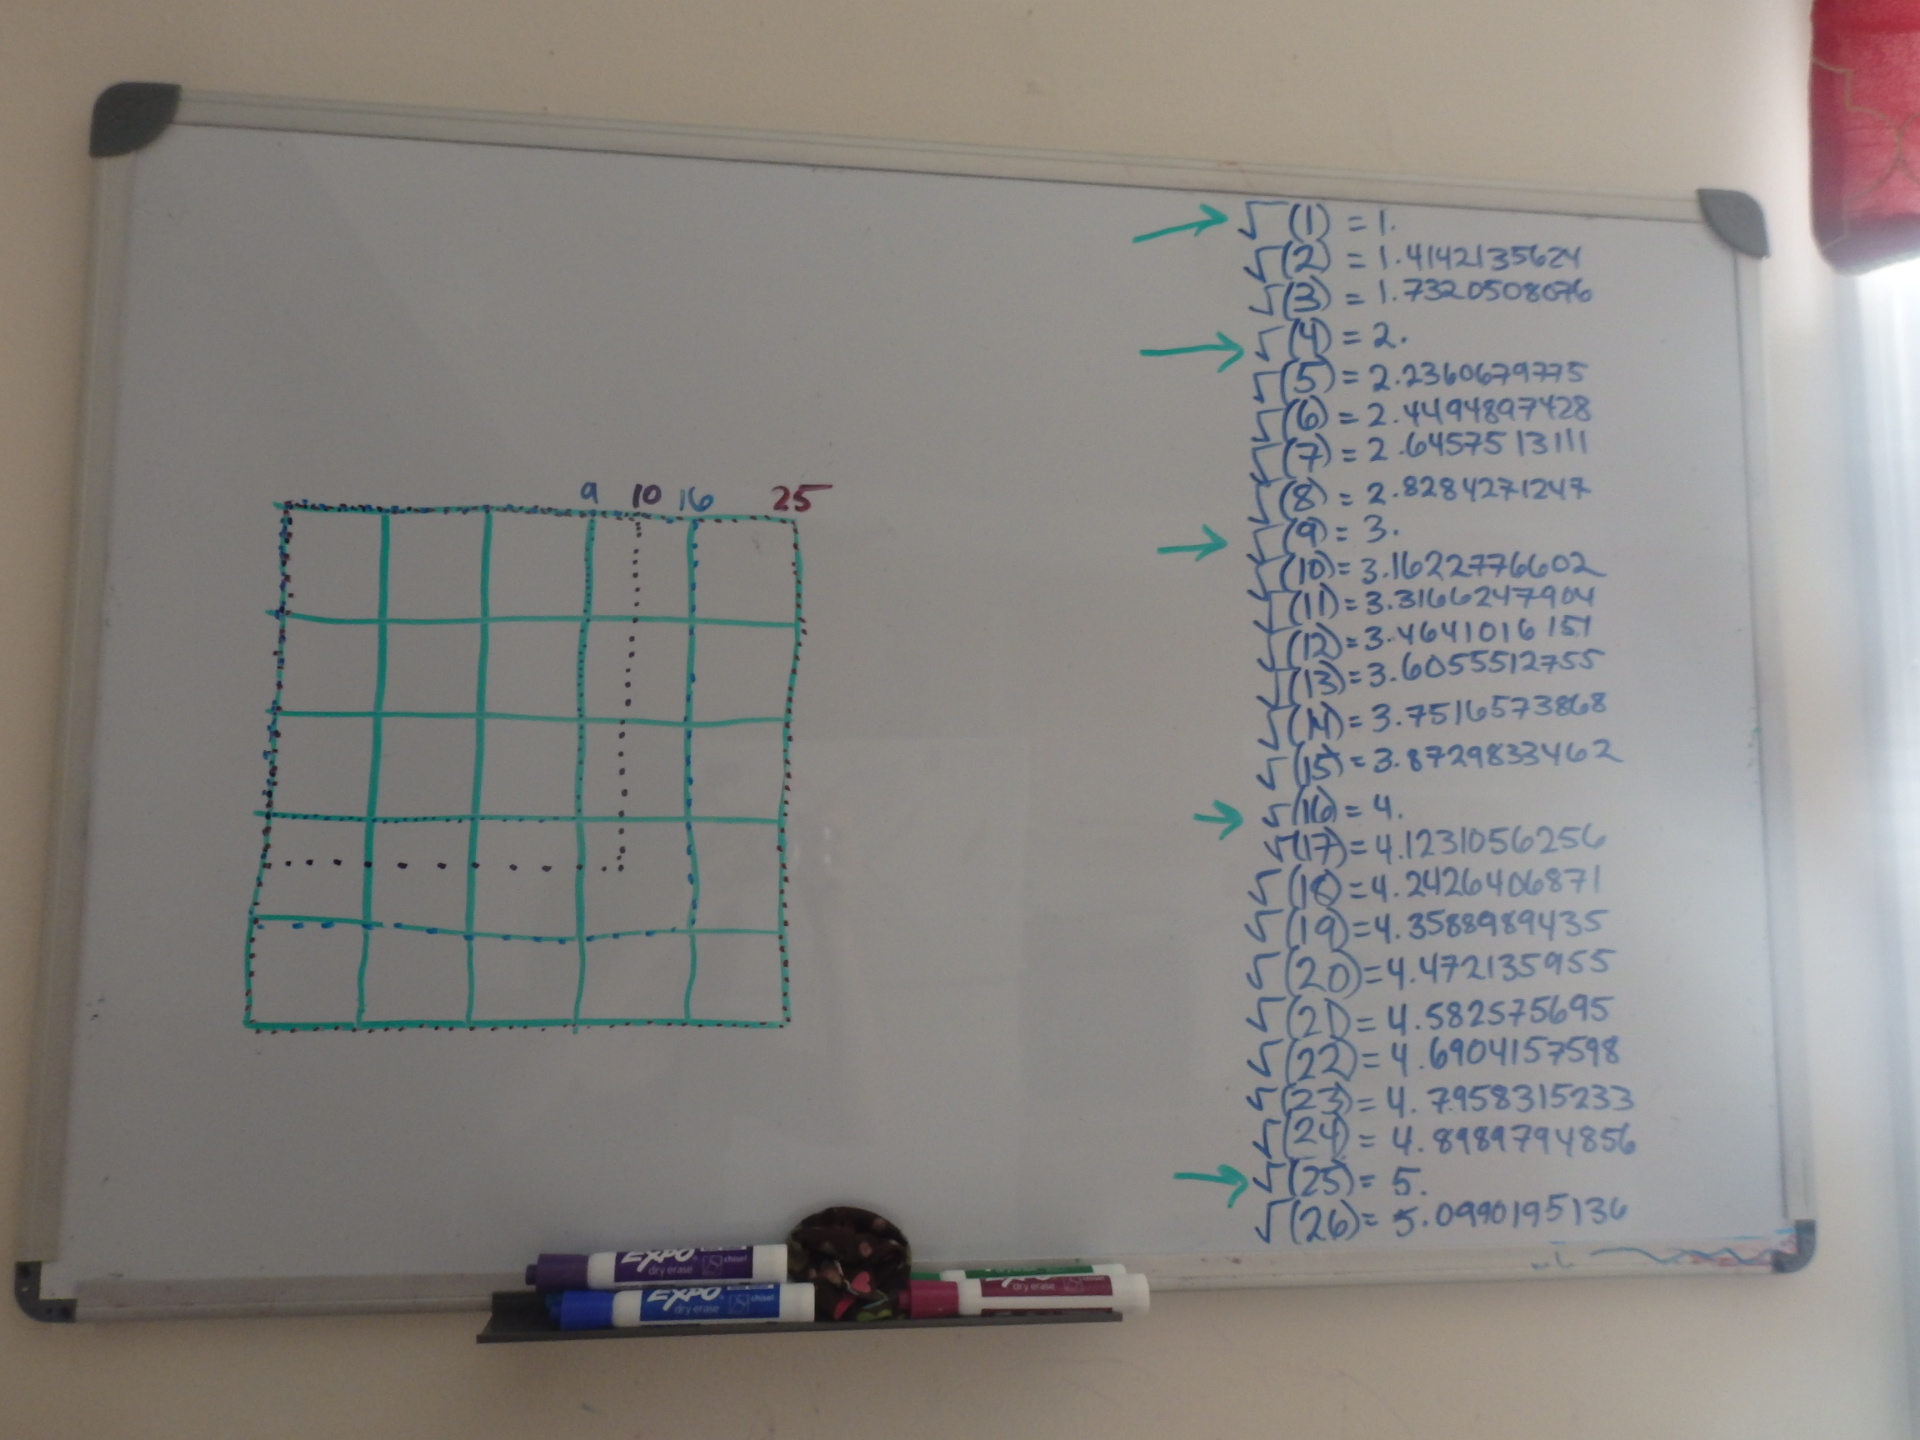 9 10 16 25
√(1) = 1.
√(2) = 1.4142135624
√(3) = 1.7320508076
√(4) = 2.
√(5) = 2.2360679775
√(6) = 2.4494897428
√(7) = 2.6457513111
√(8) = 2.8284271247
√(9) = 3.
√(10) = 3.1622776602
√(11) = 3.31662247904
√(12) = 3.4641016151
√(13) = 3.6055512755
√(14) = 3.7516573868
√(15) = 3.8729833462
√(16) = 4.
√(17) = 4.1231056256
√(18) = 4.2426406871
√(19) = 4.3588989435
√(20) = 4.472135955
√(21) = 4.582575695
√(22) = 4.6904157598
√(23) = 4.7958315233
√(24) = 4.8989794856
√(25) = 5.
√(26) = 5.0990195136
EXPO
dry erase chisel
EXPO
dry erase chisel
EXPO
dry erase chisel